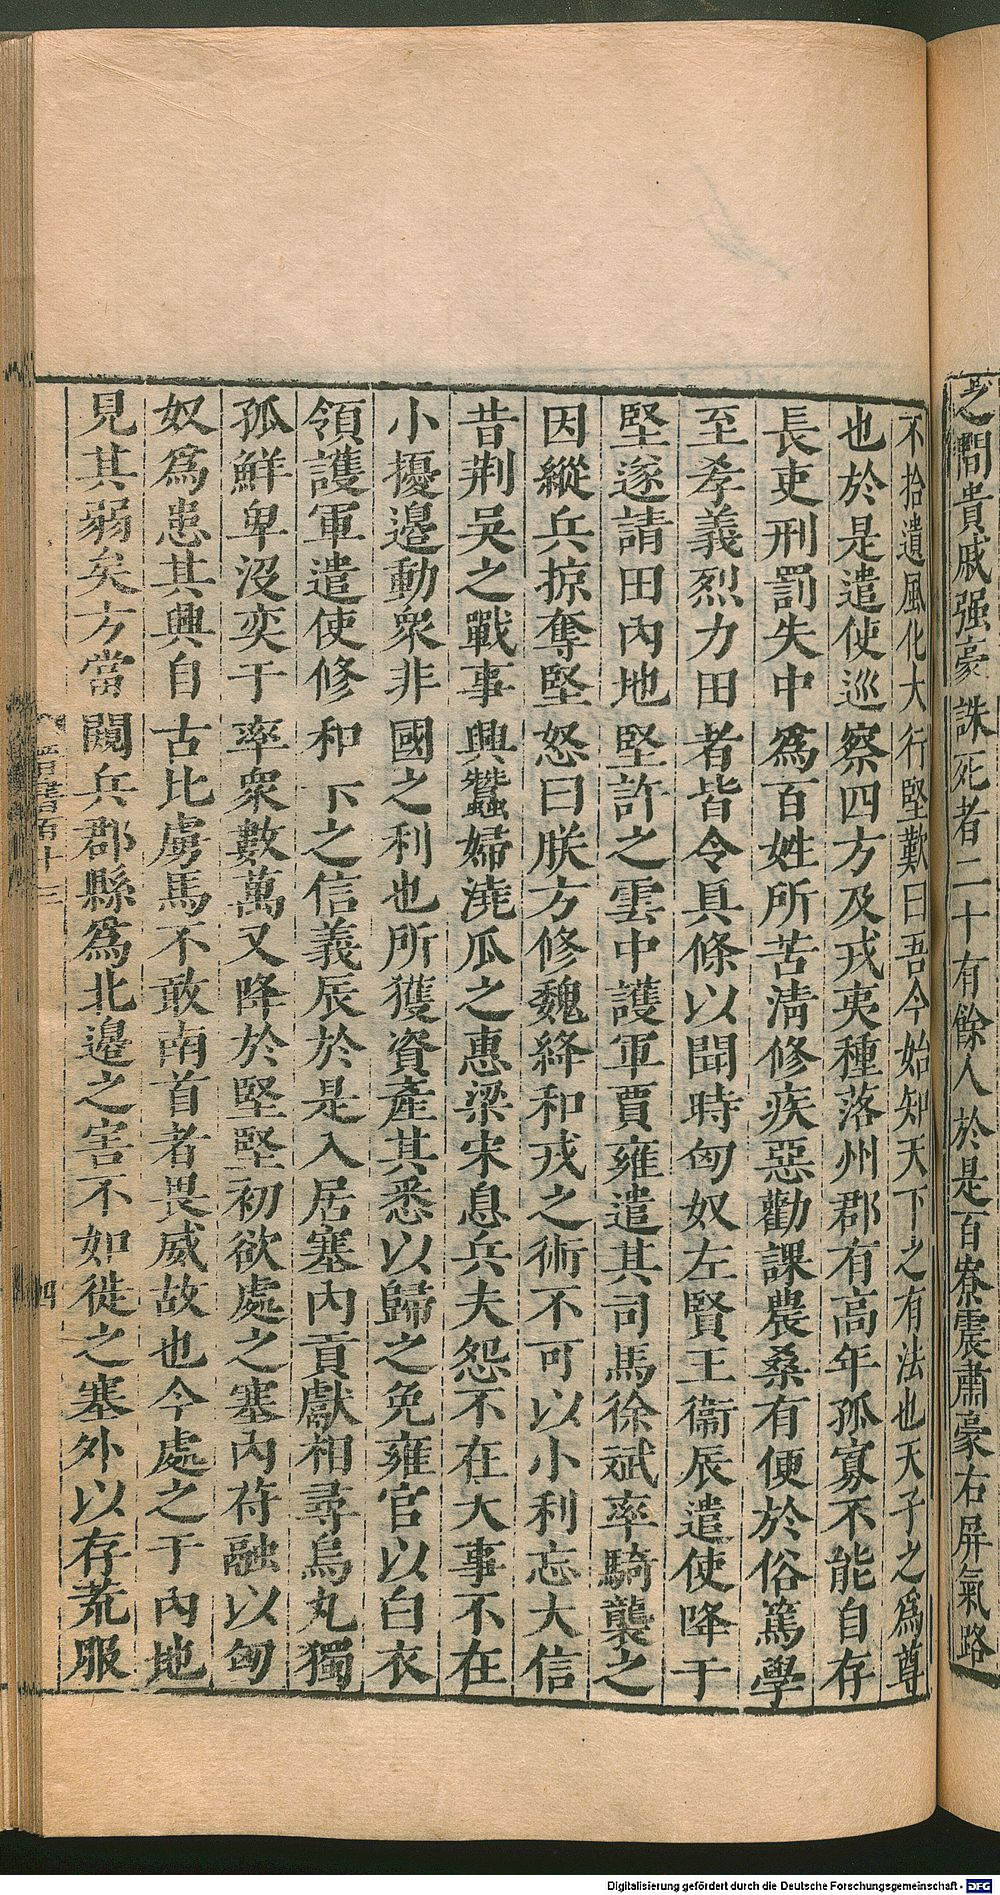 之間貴戚强豪誅死者二十有餘人於是百寮震肅豪右屏氣路
不拾遺風化大行堅歎曰吾今始知天下之有法也天子之爲尊
也於是遣使巡察四方及戎夷種落州郡有高年孤寡不能自存
長吏刑罰失中爲百姓所苦淸修疾惡勸課農桑有便於俗篤學
至孝義烈力田者皆令具條以聞時匈奴左賢王衞辰遣使降于
堅遂請田內地堅許之雲中護軍賈雍遣其司馬徐斌率騎襲之
因縱兵掠奪堅怒曰朕方修魏絳和戎之術不可以小利忘大信
昔荆吳之戰事興蠶婦澆瓜之惠梁宋息兵夫怨不在大事不在
小擾邊動衆非國之利也所獲資產其悉以歸之免雍官以白衣
領護軍遣使修和下之信義辰於是入居塞內貢獻相尋烏丸獨
孤鮮卑沒奕于率衆數萬又降於堅堅初欲處之塞內苻融以匈
奴爲患其興自古比虜馬不敢南首者畏威故也今處之于內地
見其弱矣方當闚兵郡縣爲北邊之害不如徙之塞外以存荒服
晉書百十三
四
Digitalisierung gefördert durch die Deutsche Forschungsgemeinschaft - DFG